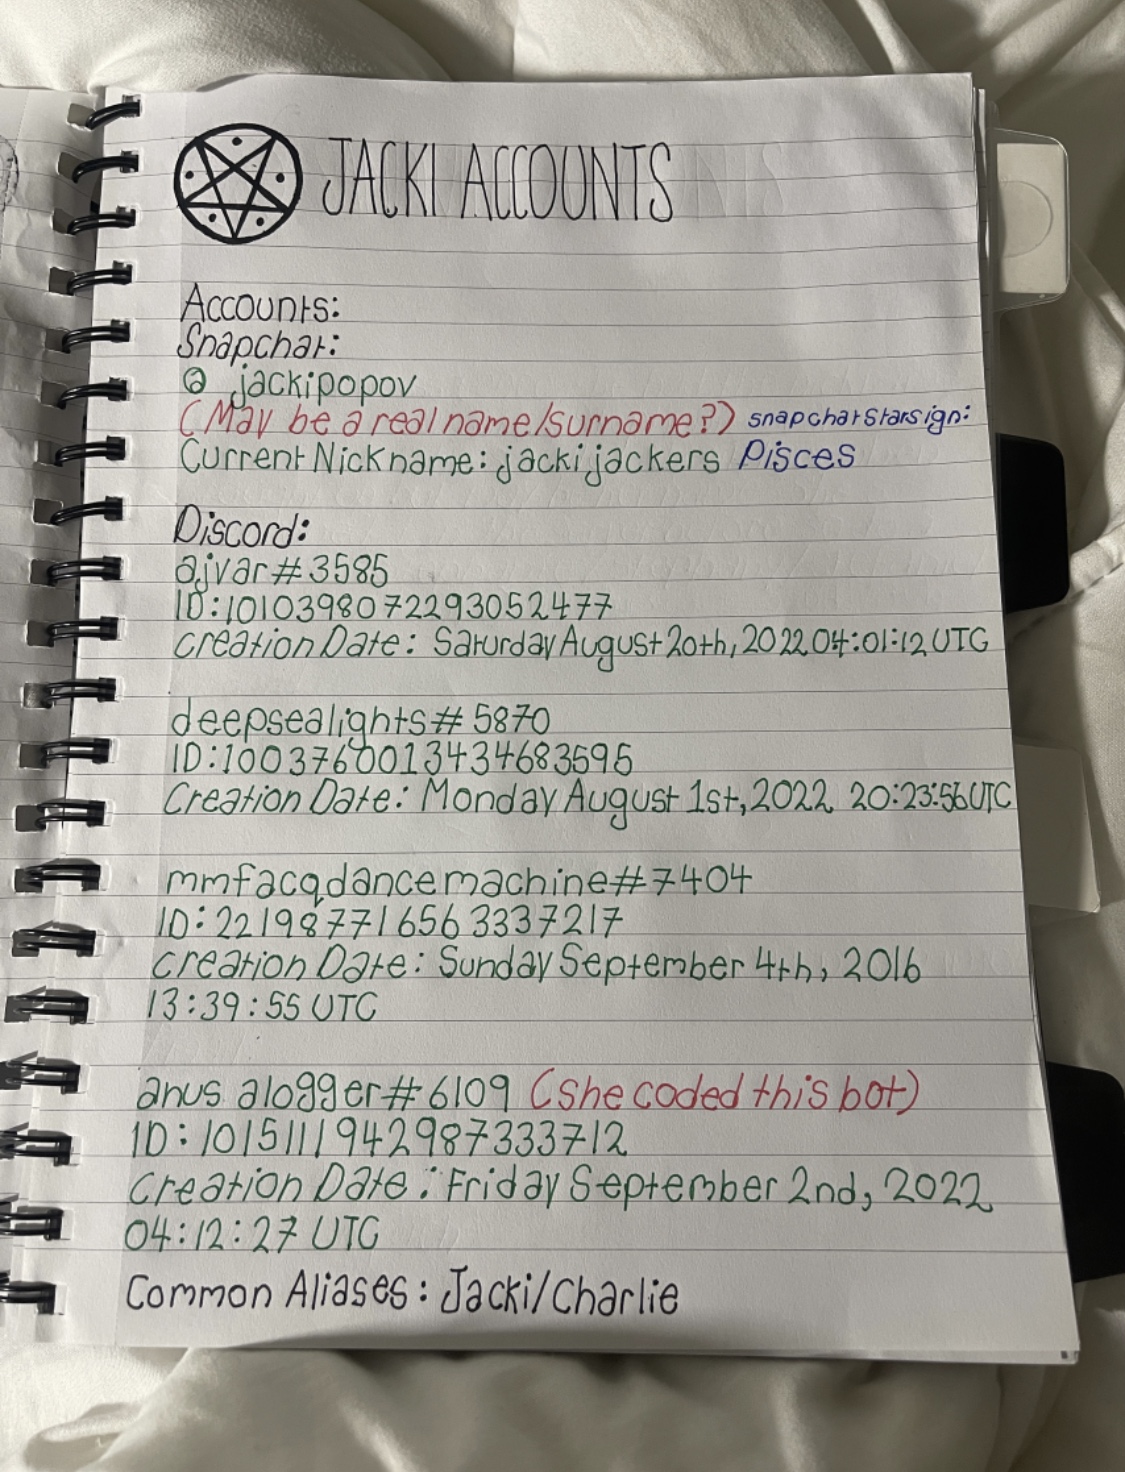 JACKI ACCOUNTS
Accounts:
Snapchat:
@ jackipopov
(May be a real name/surname?) snapchat starsign:
Current Nickname: jackijackers Pisces
Discord:
ajvar#3585
ID:1010398072293052477
Creation Date: Saturday August 20th, 2022 04:01:12 UTC
deepsealights#5870
ID:1003760013434683595
Creation Date: Monday August 1st, 2022 20:23:56 UTC
mmfacqdancemachine#7404
ID:221987716563337217
Creation Date: Sunday September 4th, 2016
13:39:55 UTC
anus alogger#6109 (she coded this bot)
ID:1015111942987333712
Creation Date: Friday September 2nd, 2022
04:12:27 UTC
Common Aliases: Jacki/Charlie